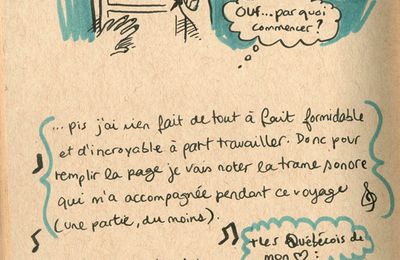 Ouf... par quoi
commencer?
... pis j'ai rien fait de tout à fait formidable
et d'incroyable à part travailler. Donc pour
remplir la page je vais noter la trame sonore
qui m'a accompagnée pendant ce voyage
(une partie, du moins).
+ les Québécois de
mon ♡: